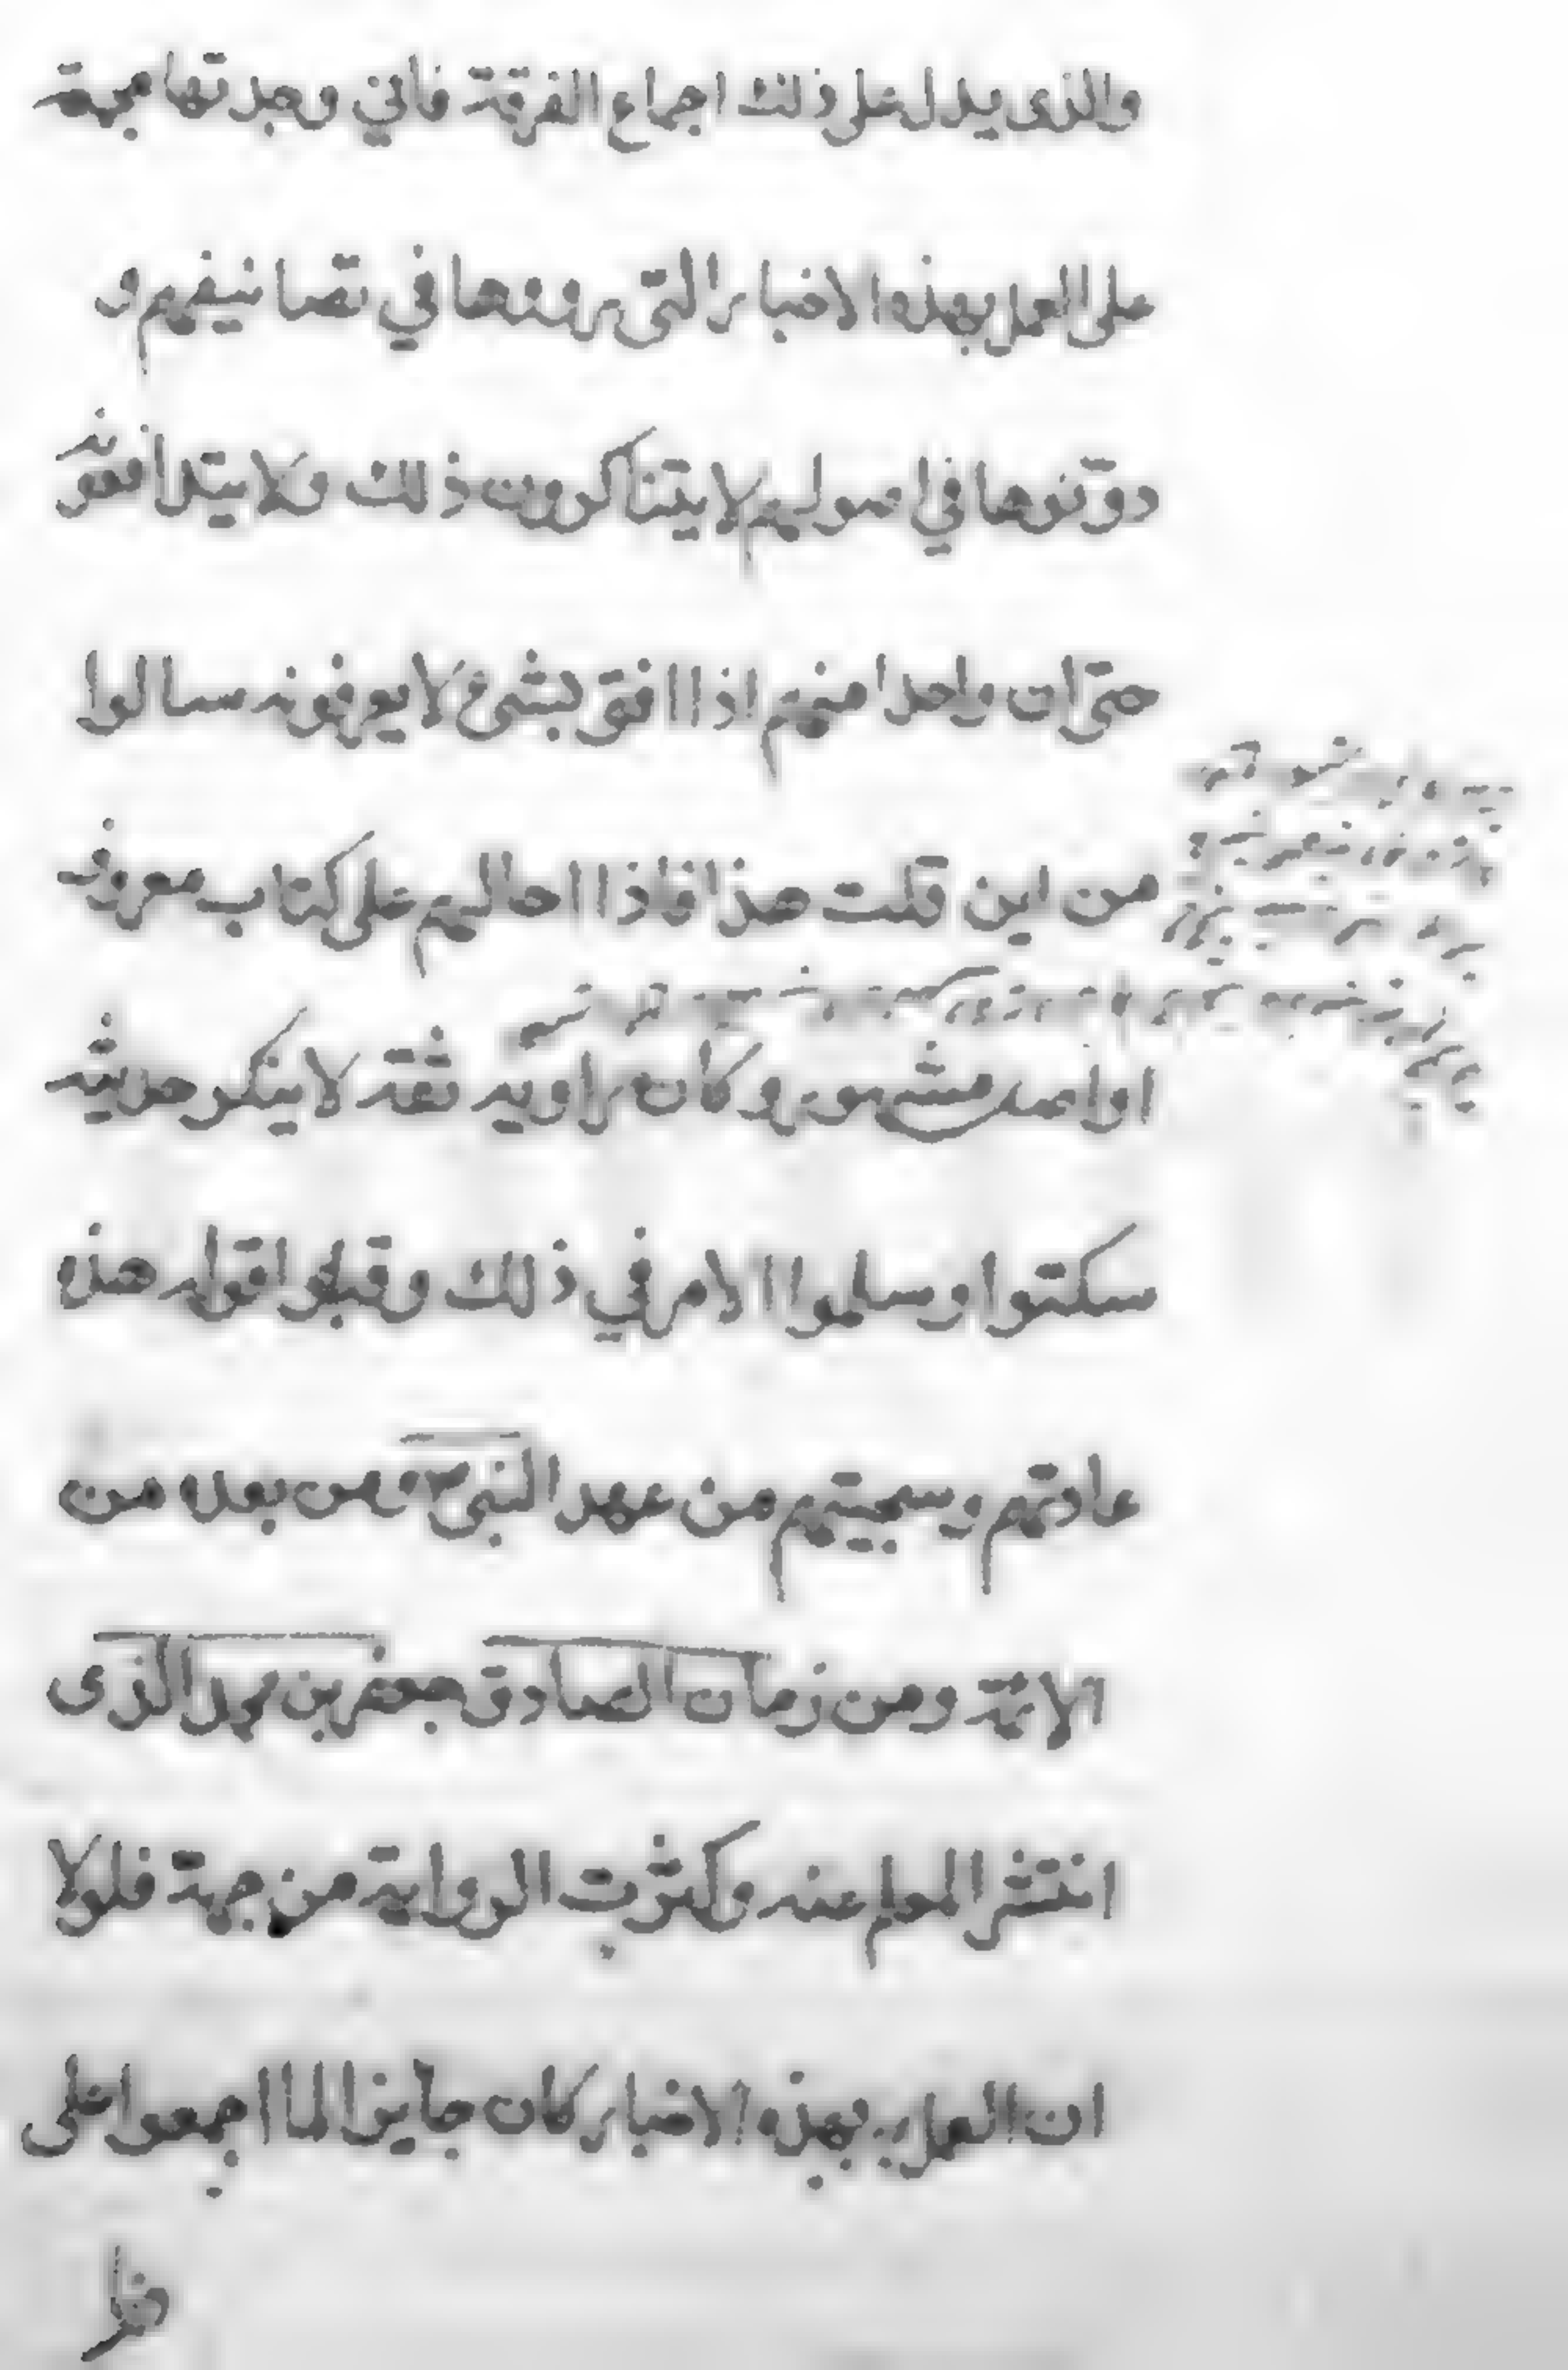 والذى يدل على ذلك اجماع الفرقة فاني وجدتها مجمعة
على العمل بهذه الاخبار التى رووها في تصانيفهم و
دوّنوها في اصولهم لا يتناكرون ذلك ولا يتدافعونه
حتى ان واحدا منهم اذا افتى بشىء لا يعرفونه سالوا
من اين قلت هذا فاذا احالهم على كتاب معروف
او اصل مشهور وكان راويه ثقة لا ينكر حديثه
سكتوا وسلموا الامر في ذلك وقبلوا قوله هذه
عادتهم وسجيتهم من عهد النبى ومن بعده من
الائمة ومن زمان الصادق جعفر بن محمد الذى
انتشر العلم عنه وكثرت الرواية من جهته فلولا
ان العمل بهذه الاخبار كان جايزا لما اجمعوا على